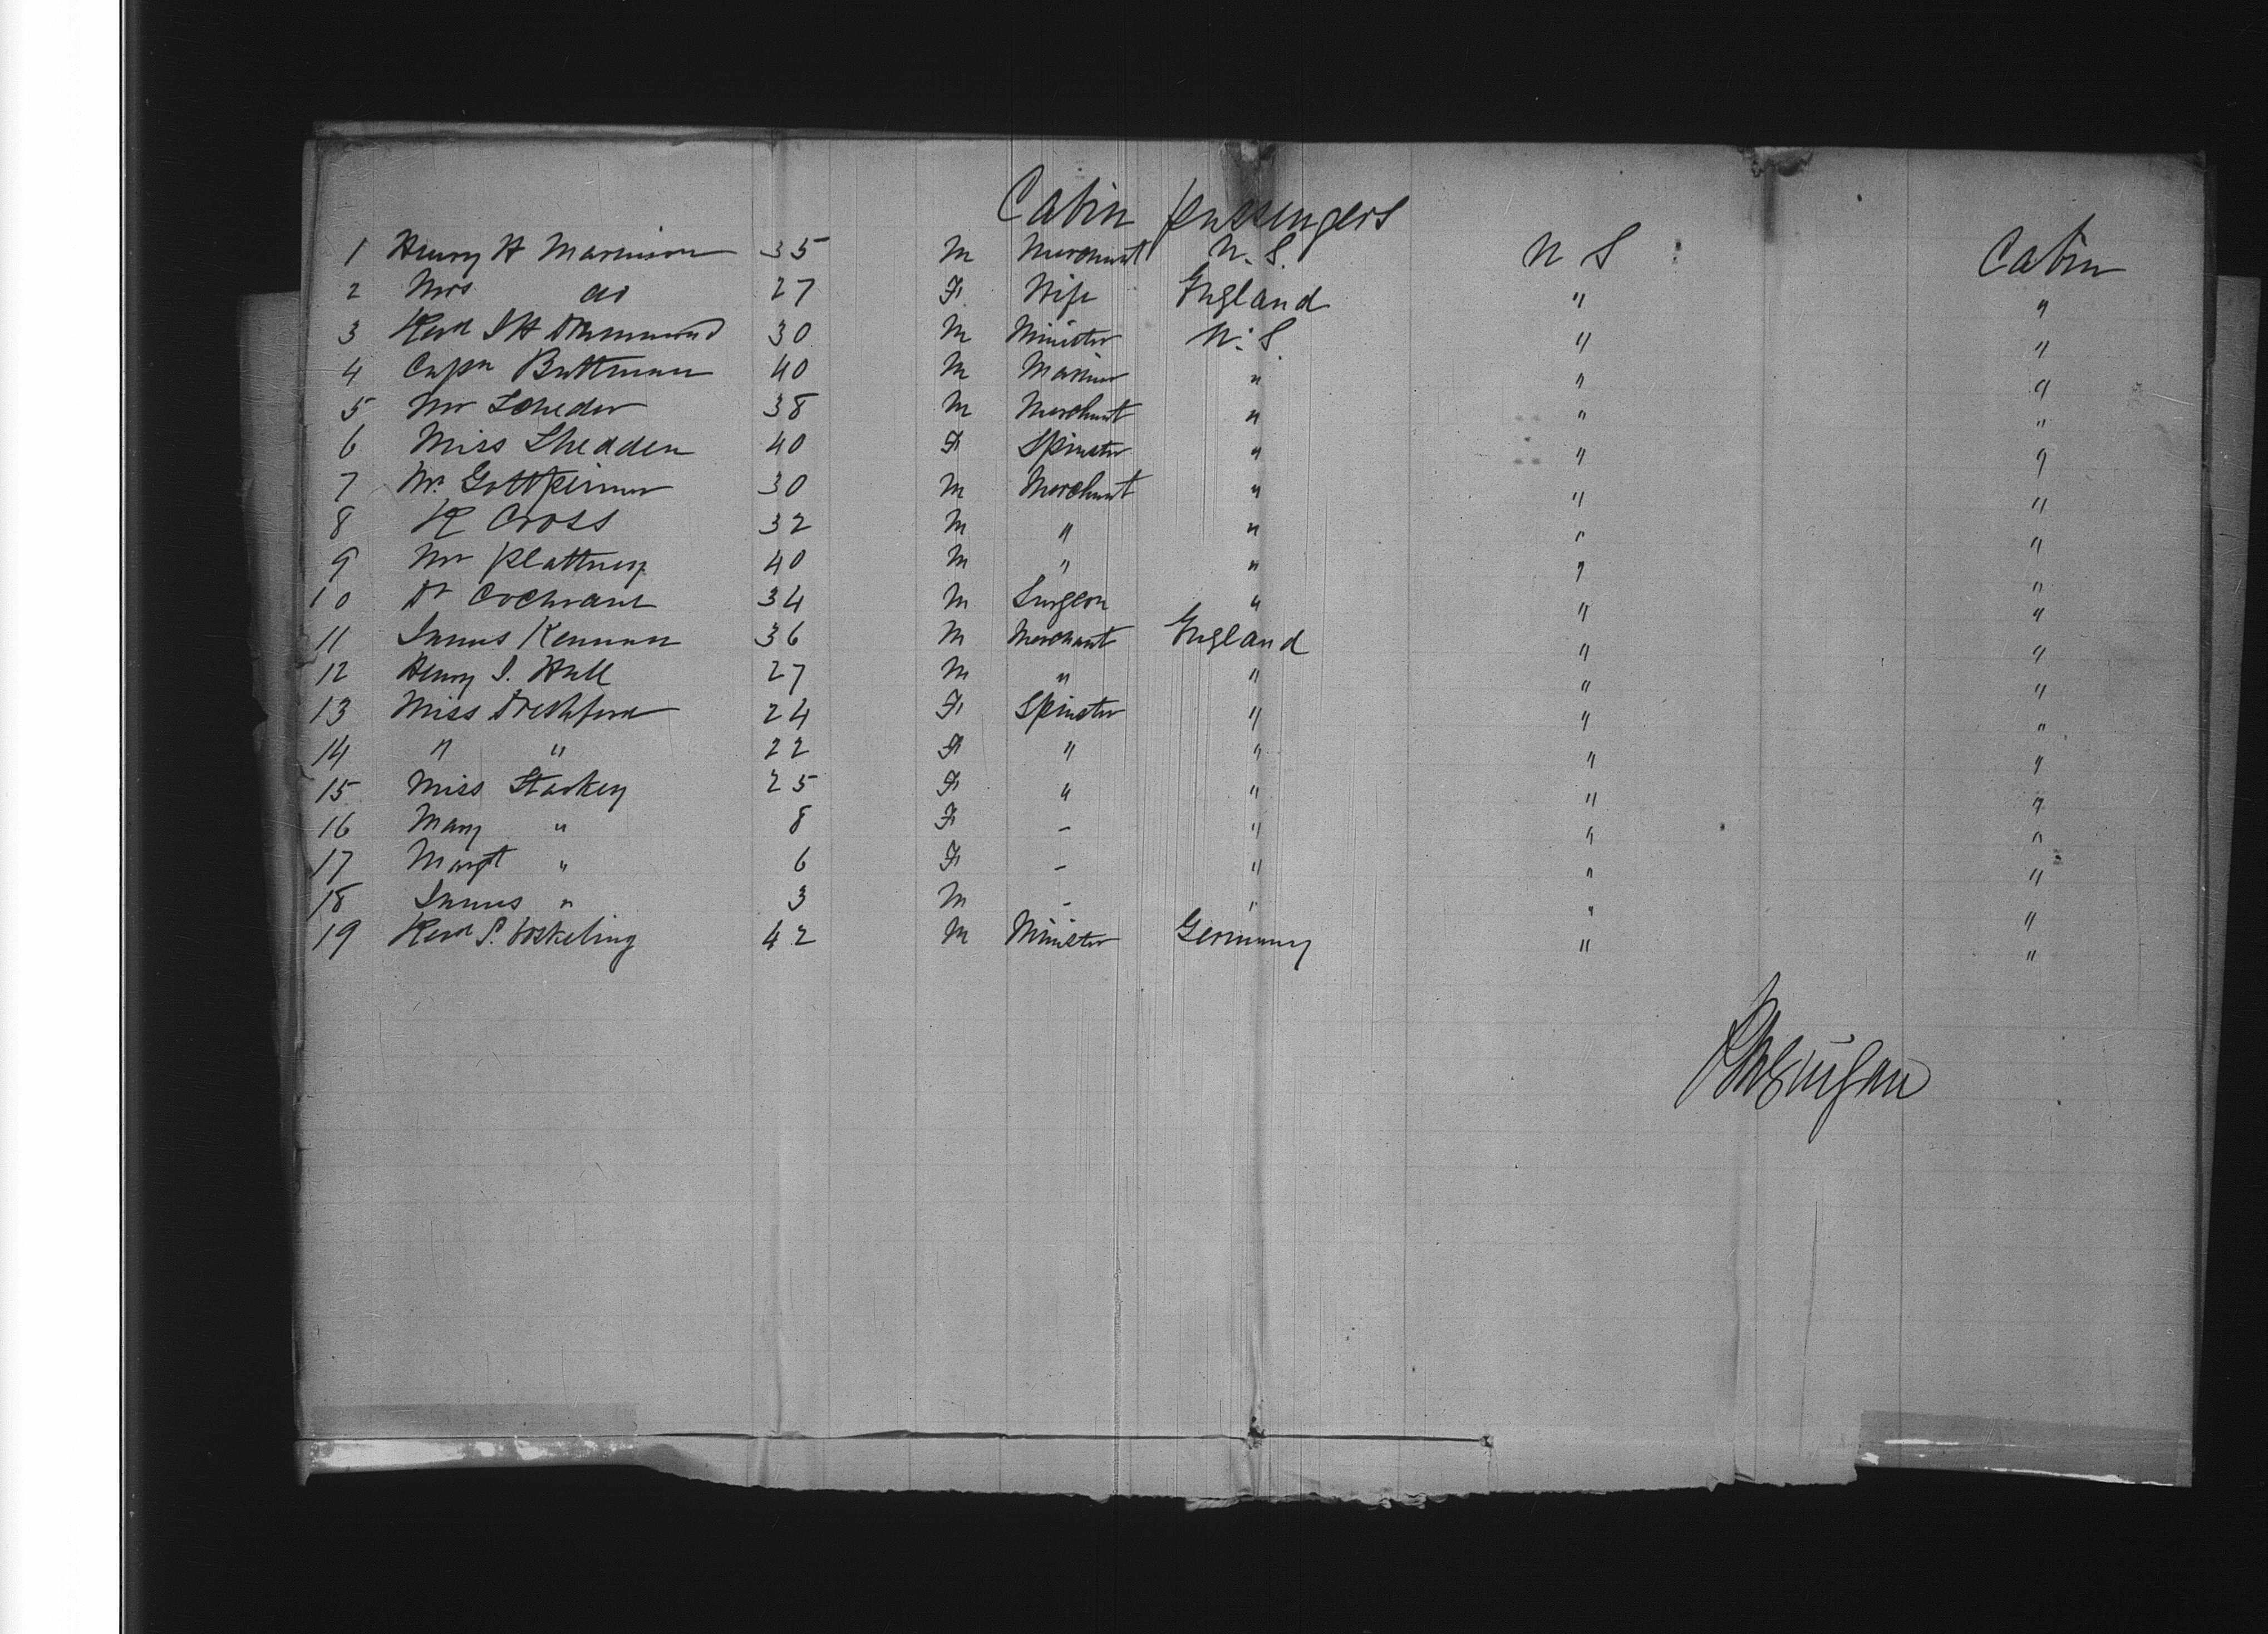 Cabin passengers
1 Henry H Marinson 35 M Merchant N. S. N S Cabin
2 Mrs do 27 F Wife England " "
3 Revd J H Drummond 30 M Minister N. S. " "
4 Capn Buttman 40 M Mariner " " "
5 Mr Scheder 38 M Merchant " " "
6 Miss Shedden 40 F Spinster " " "
7 Mr. 30 M Merchant " " "
8 R Cross 32 M " " " "
9 Mr 40 M " " " "
10 Dr Cochrane 34 M Surgeon " " "
11 James Kennan 36 M Merchant England " "
12 Henry J. Hull 27 M " " " "
13 Miss 24 F Spinster " " "
14 " " 22 F " " " "
15 Miss Starkey 25 F " " " "
16 Mary " 8 F - " " "
17 Margt " 6 F - " " "
18 James " 3 M - " " "
19 Revd S. 42 M Minister Germany " "